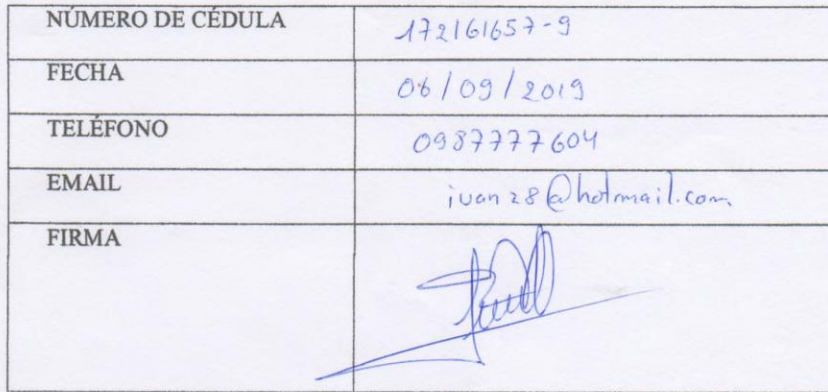 NÚMERO DE CÉDULA 172161657-9
FECHA 06/09/2019
TELÉFONO 0987777604
EMAIL ivan28@hotmail.com
FIRMA